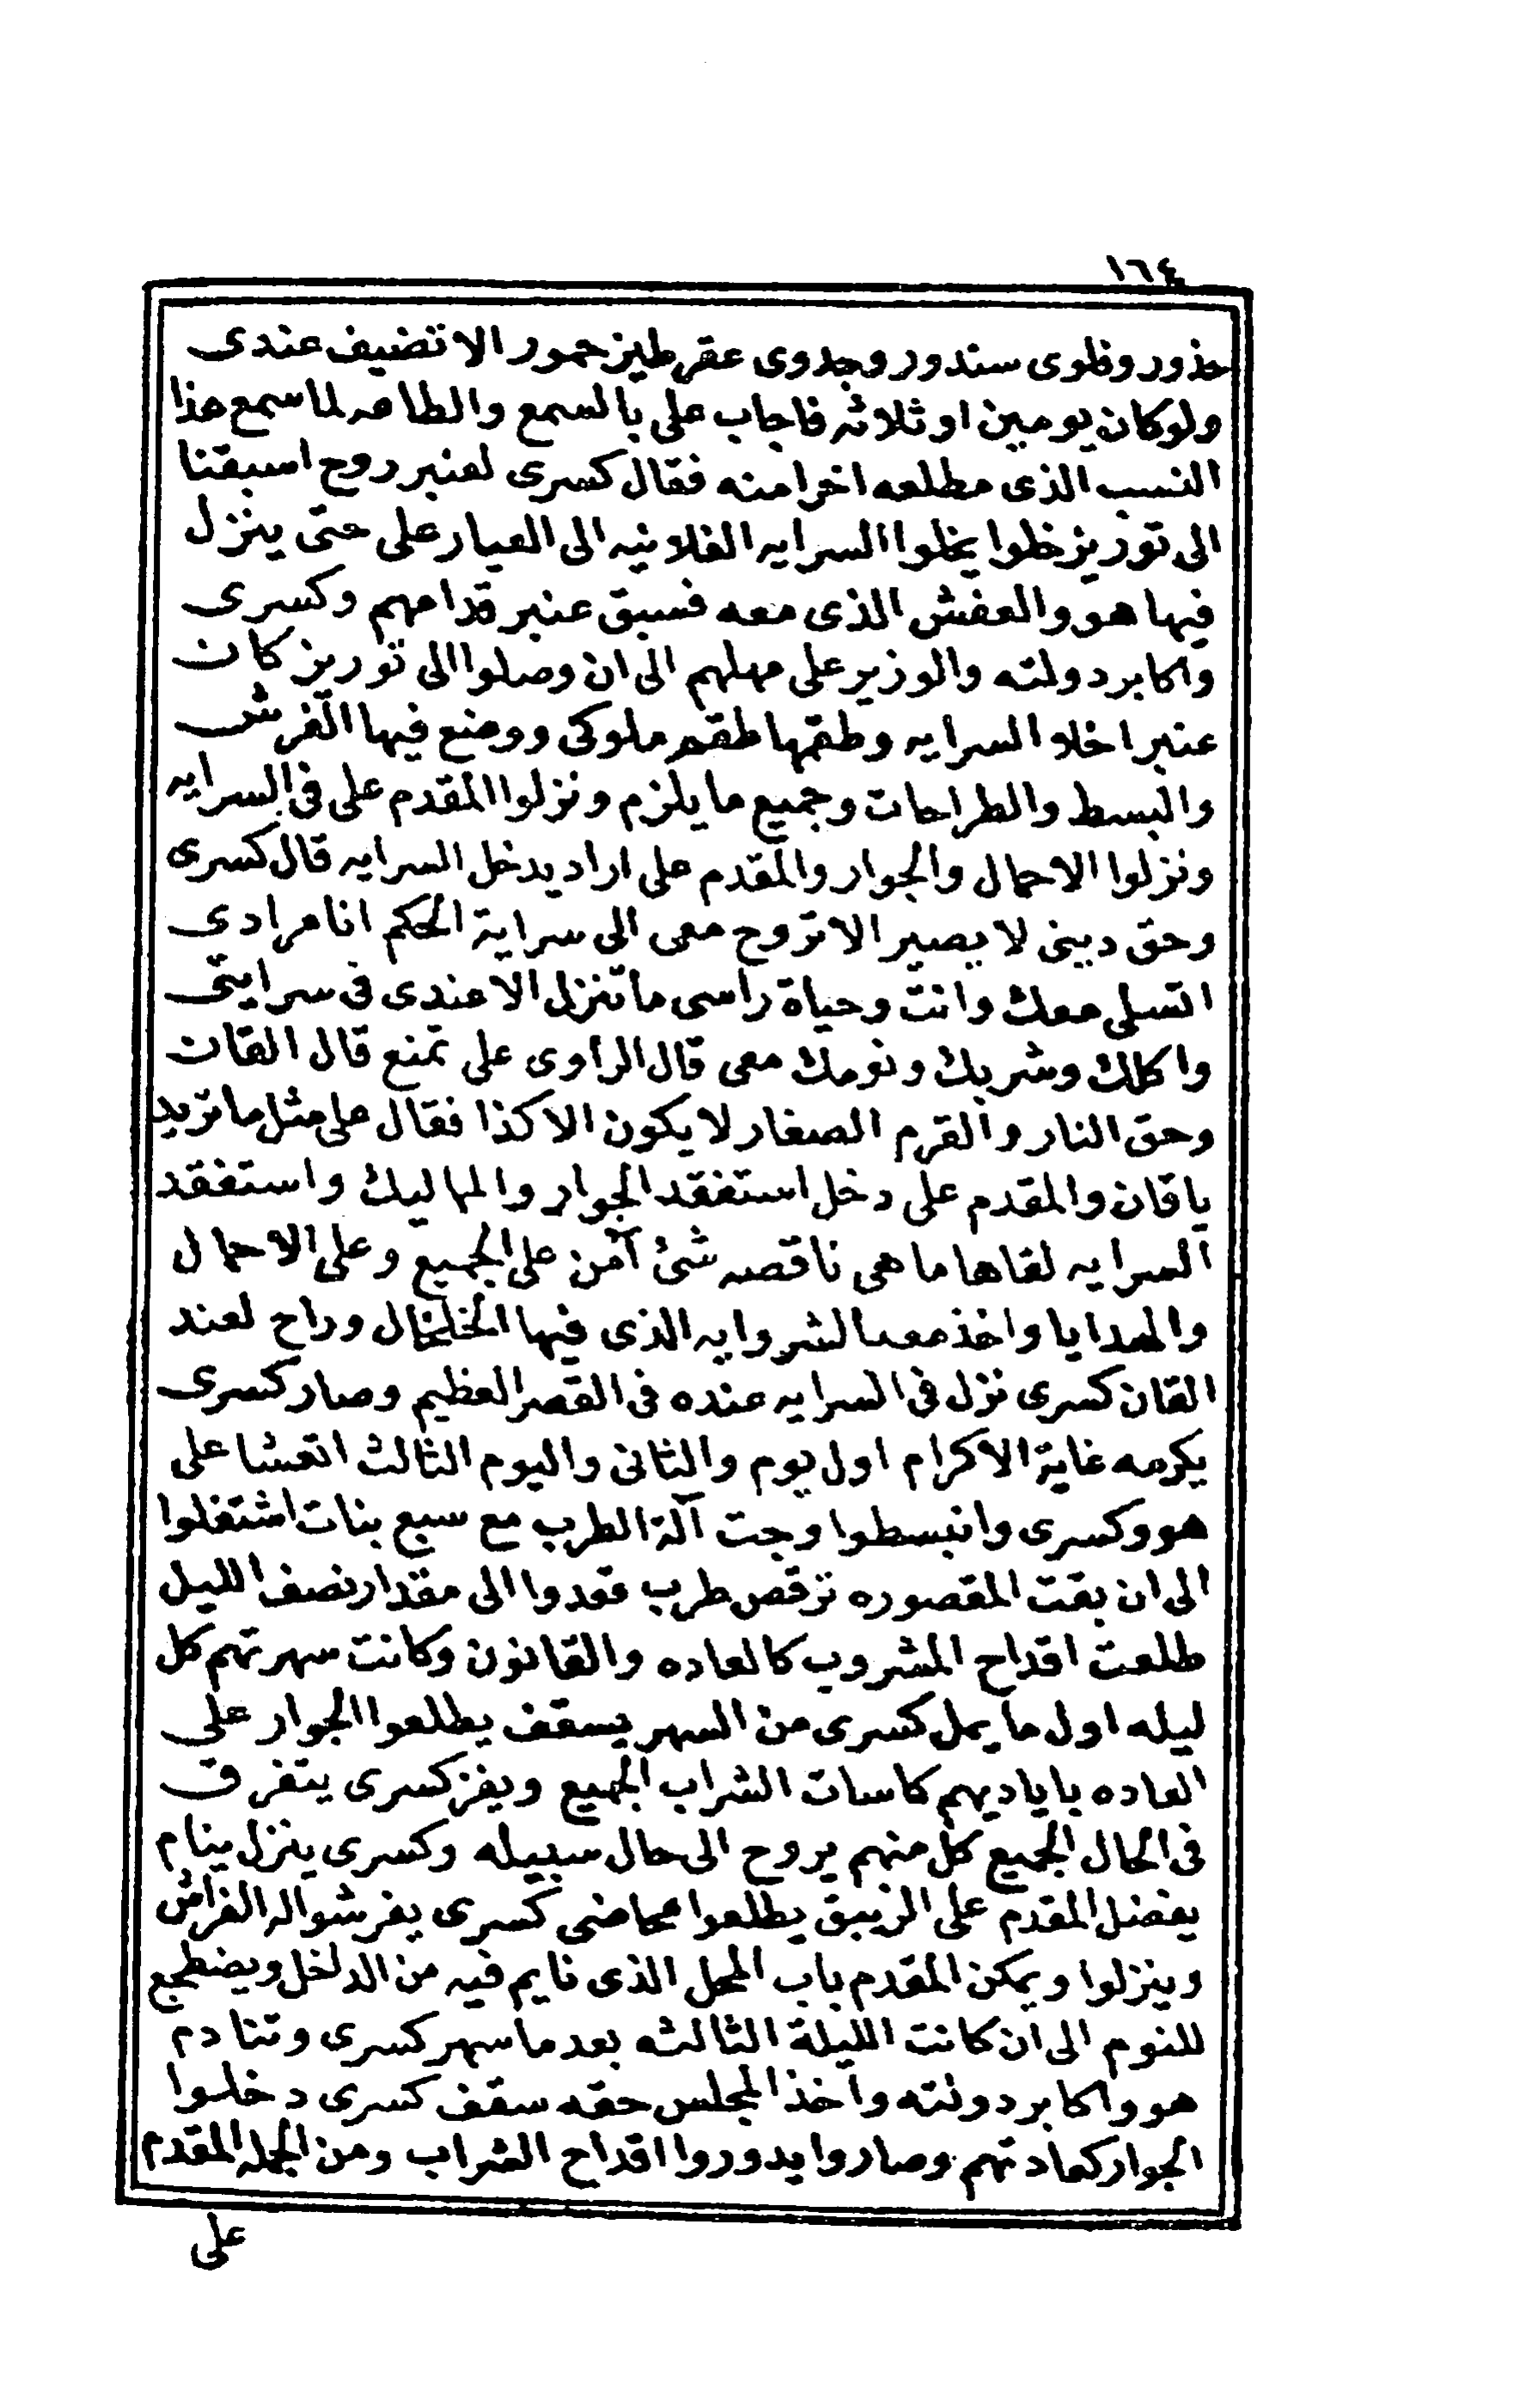 ١٦٤
حذور وظوى سندور وجدوى عقرطيز حمور الا تضيف عندى
ولو كان يومين او ثلاثه فاجاب على بالسمع والطاعه لما سمع هذا
النسب الذى مطلعه اخرا منه فقال كسرى لعنبر روح اسبقنا
الى توريز خلوا يخلوا السرايه الفلانيه الى العيار على حتى ينزل
فيها هو والعفش الذى معه فسبق عنبر قدامهم وكسرى
واكابر دولته والوزير على مهلهم الى ان وصلوا الى توريز كان
عنبر اخلا السرايه وطقمها طقم ملوكى ووضع فيها الفرش
والبسط والطراحات وجميع ما يلزم ونزلوا المقدم على فى السرايه
ونزلوا الاحمال والجوار والمقدم على اراد يدخل السرايه قال كسرى
وحق دينى لا يصير الا تروح معى الى سراية الحكم انا مرادى
اتسلى معك وانت وحياة راسى ما تنزل الا عندى فى سرايتى
واكلك وشربك ونومك معى قال الراوى على تمنع قال القان
وحق النار والقرم الصغار لا يكون الا كذا فقال على مثل ما تريد
ياقان والمقدم على دخل استفقد الجوار والمماليك واستفقد
السرايه لقاها ما هى ناقصه شئ آمن على الجميع وعلى الاحمال
والهدايا واخذ معه الشروايه الذى فيها الخلخال وراح لعند
القان كسرى نزل فى السرايه عنده فى القصر العظيم وصار كسرى
يكرمه غاية الاكرام اول يوم والثانى واليوم الثالث اتعشا على
هو وكسرى وانبسطوا وجت آلة الطرب مع سبع بنات اشتغلوا
الى ان بقت المقصوره ترقص طرب قعدوا الى مقدار نصف الليل
طلعت اقداح المشروب كالعاده والقانون وكانت سهرتهم كل
ليله اول ما يمل كسرى من السهر يسقف يطلعوا الجوار على
العاده باياديهم كاسات الشراب الجميع ويفز كسرى يتفرق
فى الحال الجميع كل منهم يروح الى حال سبيله وكسرى ينزل ينام
يفضل المقدم على الزيبق يطلعوا محاضى كسرى يفرشوا له الفراش
وينزلوا ويمكن المقدم باب المحل الذى نايم فيه من الداخل ويضطجع
للنوم الى ان كانت الليلة الثالثه بعد ما سهر كسرى وتنادم
هو واكابر دولته واخذ المجلس حقه سقف كسرى دخلوا
الجوار كعادتهم وصاروا يدوروا اقداح الشراب ومن الجمله المقدم
على